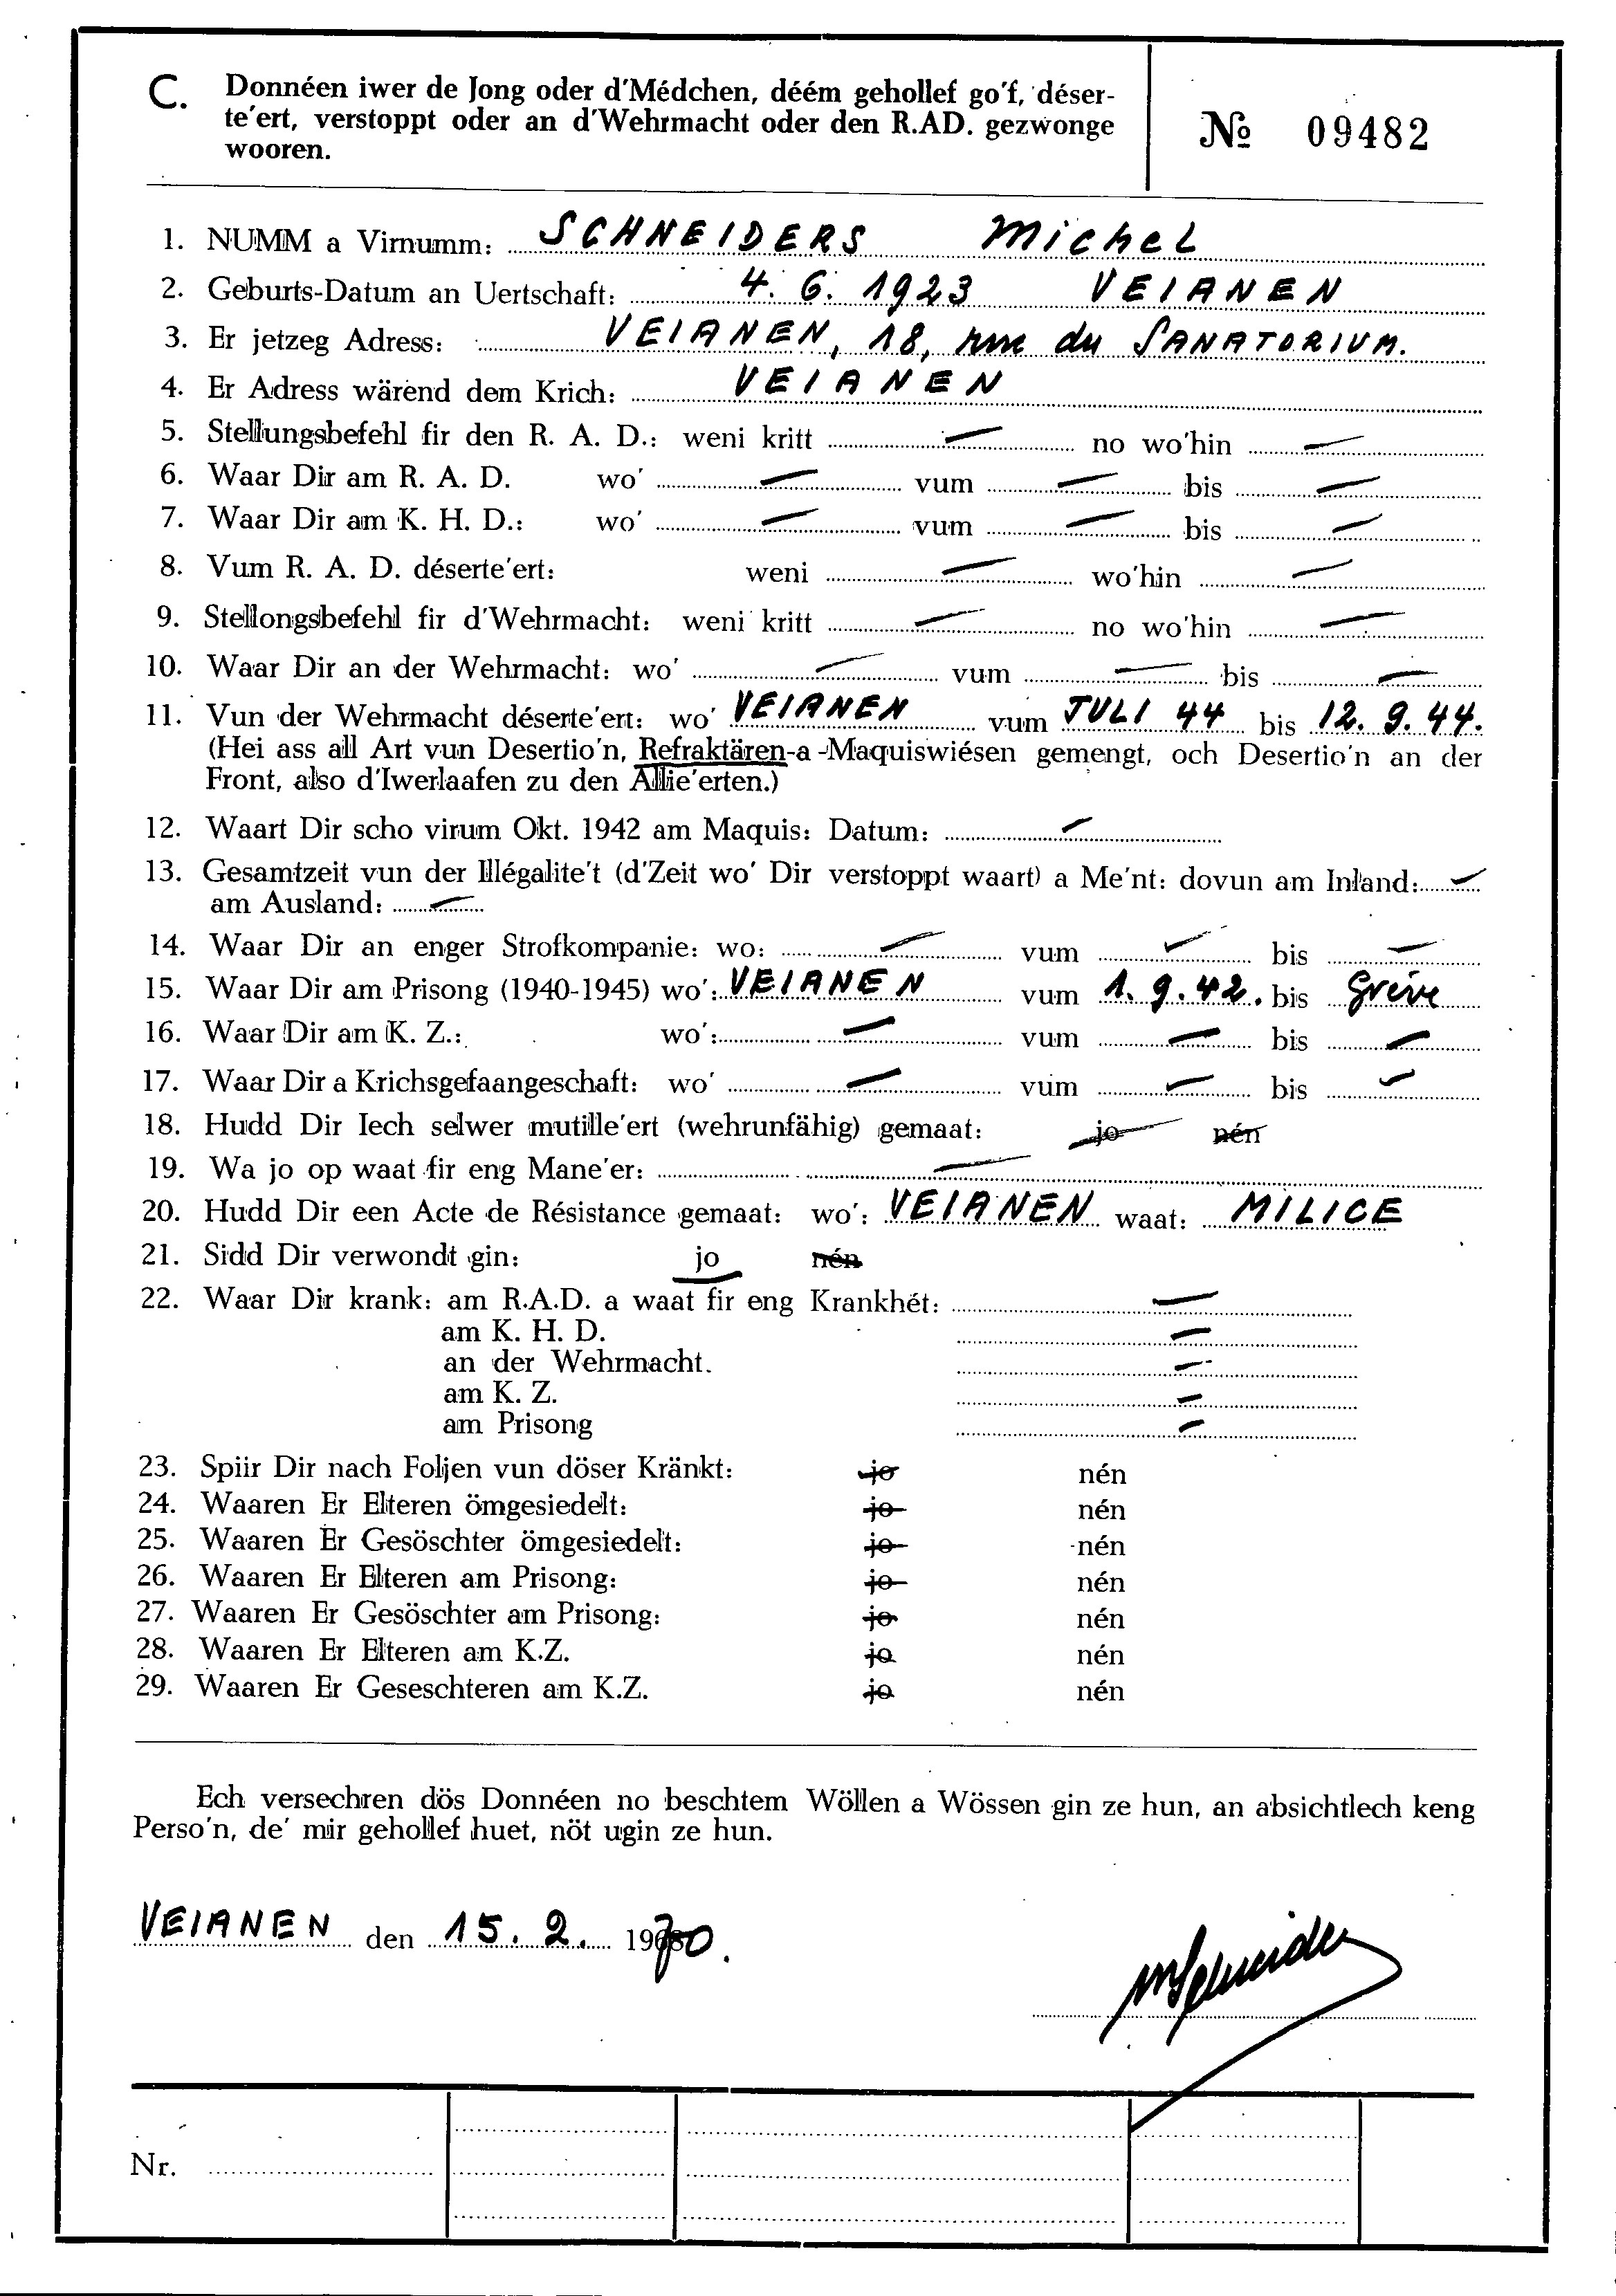 C. Donnéen iwer de Jong oder d'Médchen, déém gehollef go'f, déser-
te'ert, verstoppt oder an d'Wehrmacht oder den R.AD. gezwonge
wooren.
№ 09482
1. NUMM a Virnumm: SCHNEIDERS Michel
2. Geburts-Datum an Uertschaft: 4. 6. 1923 VEIANEN
3. Er jetzeg Adress: VEIANEN, 18, rue du SANATORIUM.
4. Er Adress wärend dem Krich: VEIANEN
5. Stellungsbefehl fir den R. A. D.: weni kritt — no wo'hin —
6. Waar Dir am R. A. D. wo' — vum — bis —
7. Waar Dir am K. H. D.: wo' — vum — bis —
8. Vum R. A. D. déserte'ert: weni — wo'hin —
9. Stellongsbefehl fir d'Wehrmacht: weni kritt — no wo'hin —
10. Waar Dir an der Wehrmacht: wo' — vum — bis —
11. Vun der Wehrmacht déserte'ert: wo' VEIANEN vum JULI 44 bis 12. 9. 44.
(Hei ass all Art vun Desertio'n, Refraktären-a-Maquiswiésen gemengt, och Desertio'n an der
Front, also d'Iwerlaafen zu den Allie'erten.)
12. Waart Dir scho virum Okt. 1942 am Maquis: Datum: —
13. Gesamtzeit vun der Illégalite't (d'Zeit wo' Dir verstoppt waart) a Me'nt: dovun am Inland: —
am Ausland: —
14. Waar Dir an enger Strofkompanie: wo: — vum — bis —
15. Waar Dir am Prisong (1940-1945) wo': VEIANEN vum 1. 9. 42. bis Grève
16. Waar Dir am K. Z.: wo': — vum — bis —
17. Waar Dir a Krichsgefaangeschaft: wo' — vum — bis —
18. Hudd Dir Iech selwer mutille'ert (wehrunfähig) gemaat: jo nén
19. Wa jo op waat fir eng Mane'er: —
20. Hudd Dir een Acte de Résistance gemaat: wo': VEIANEN waat: MILICE
21. Sidd Dir verwondt gin: jo nén
22. Waar Dir krank: am R.A.D. a waat fir eng Krankhét: —
am K. H. D. —
an der Wehrmacht. —
am K. Z. —
am Prisong —
23. Spiir Dir nach Foljen vun döser Kränkt: jo nén
24. Waaren Er Elteren ömgesiedelt: jo nén
25. Waaren Er Gesöschter ömgesiedelt: jo nén
26. Waaren Er Elteren am Prisong: jo nén
27. Waaren Er Gesöschter am Prisong: jo nén
28. Waaren Er Elteren am K.Z. jo nén
29. Waaren Er Geseschteren am K.Z. jo nén
Ech versechren dös Donnéen no beschtem Wöllen a Wössen gin ze hun, an absichtlech keng
Perso'n, de' mir gehollef huet, nöt ugin ze hun.
VEIANEN den 15. 2. 1970.
MSchneiders
Nr.